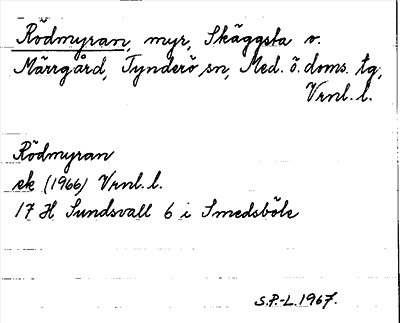 Rödmyran, myr, Skäggsta v.
Märrgård, Tynderö sn, Med. ö. doms. tg,
Vrnl. l.
Rödmyran
ek (1966) Vrnl. l.
17 H Sundsvall 6 i Smedsböle
S.P.-L. 1967.